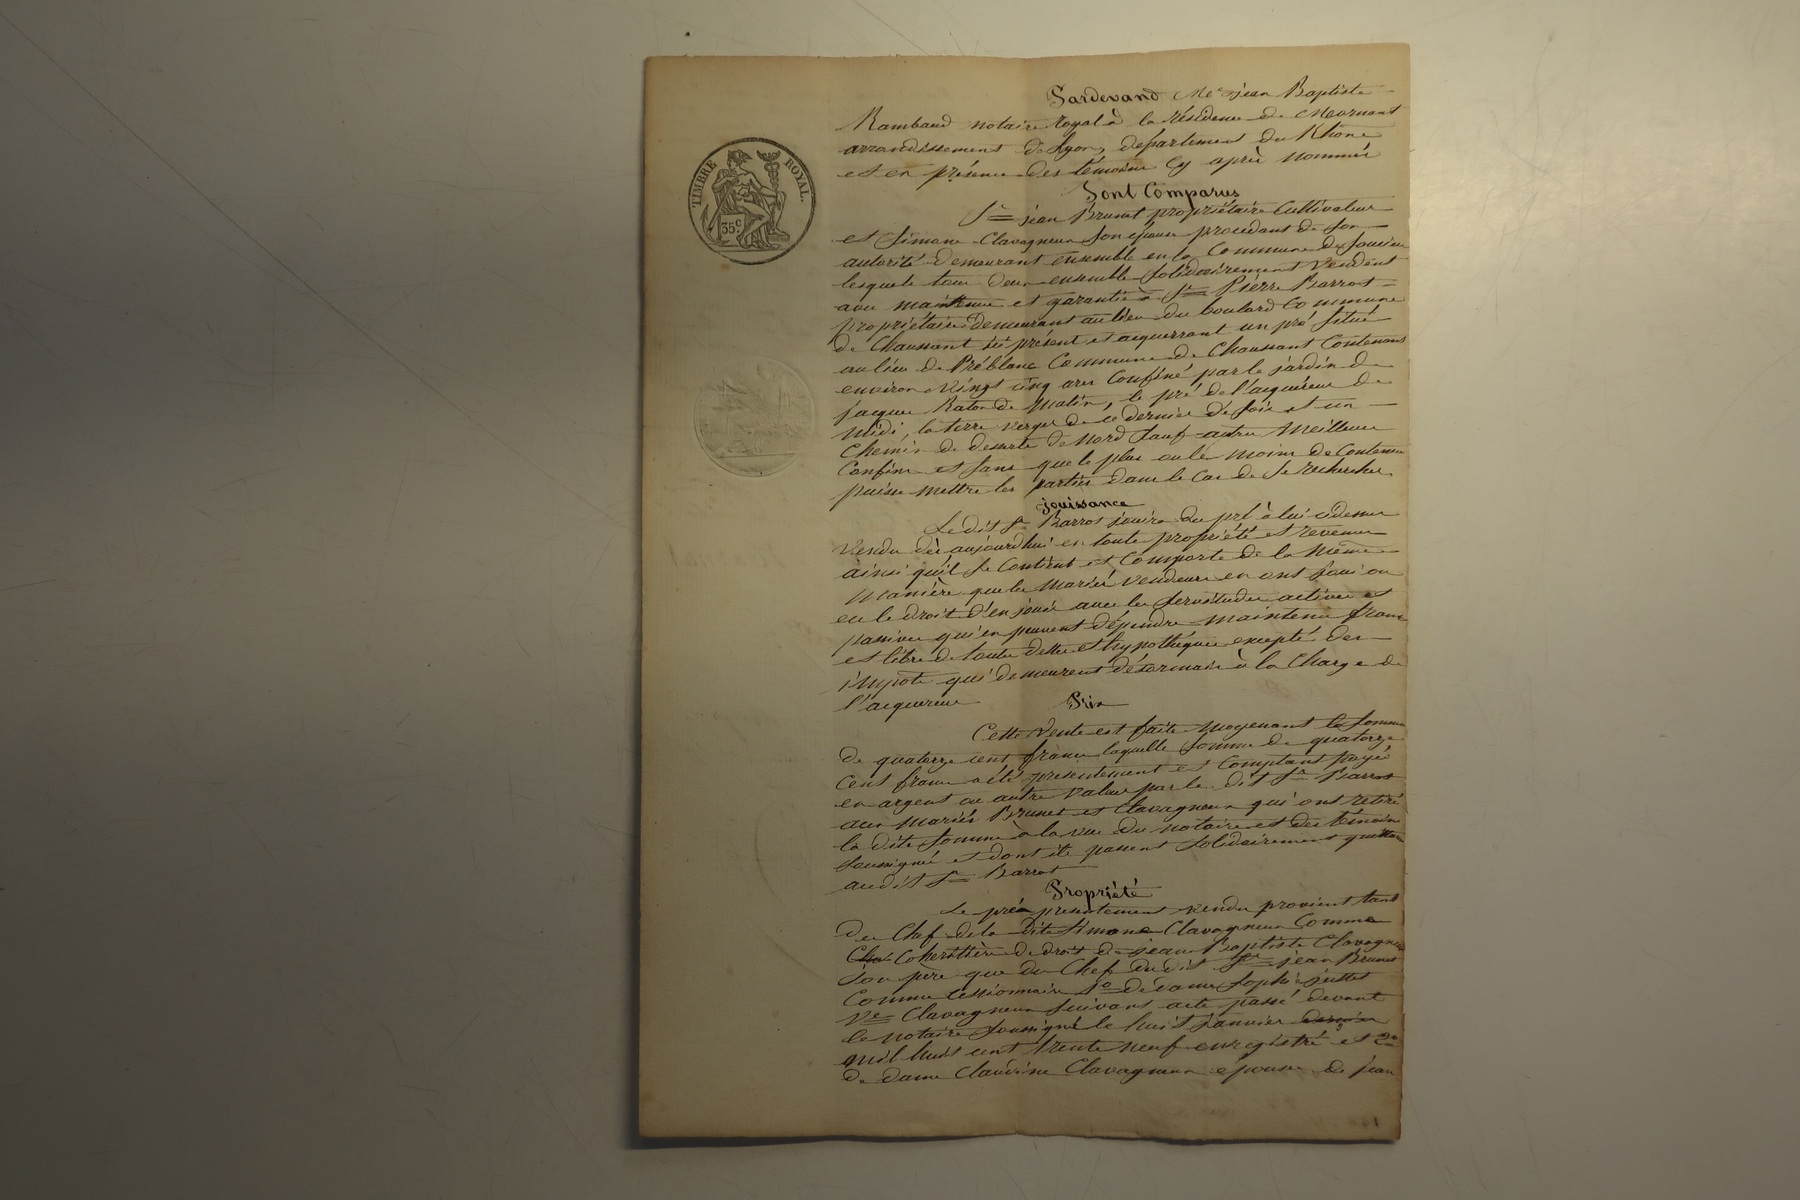 TIMBRE ROYAL.
35c
Pardevand Me jean Baptiste
Rambaud notaire royal à la résidence de Mornant
arrondissement de Lyon, département du Rhône
et en présence des témoins cy après nommés
Sont Comparus
Sr jean Brunet propriétaire Cultivateur
et Simone Clavagneux son épouse procedant de son
autorité demeurant ensemble en la Commune de Soucieu
lesquels tous deux ensemble solidairement Vendent
avec maintenue et garantie à Sr Pierre Barrot
propriétaire demeurant au lieu du boulard Commune
de Chaussant ici présent et acquerrant un pré situé
au lieu de Préblanc Commune de Chaussant Contenant
environ Vingt cinq ares Confiné par le jardin de
jacques Raton de Matin, le pré de l'acquéreur de
Midi, la terre verger de ce dernier de soir et un
Chemin de deserte de Nord sauf autres Meilleurs
Confins et sans que le plus ou le moins de Contenue
puisse mettre les parties dans le Cas de se rechercher
jouissance
Le dit Sr Barrot jouira du pré à lui cidessus
Vendu dès aujourdhui en toute propriété et revenus
ainsi qu'il se Contient et Comporte de la Même
Manière que les Mariés Vendeurs en ont joui ou
eu le droit d'en jouir avec les servitudes actives et
passives qui en peuvent dépendre maintenu franc
et libre de toutes dettes et hypothèques excepté des
impots qui demeurent désormais à la Charge de
l'acquereur
Prix
Cette Vente est faite Moyenant la Somme
de quatorze cent francs laquelle somme de quatorze
cent francs a été présentement et Comptant payé
en argent ou autre Valeur par le dit Sr Barrot
aux Mariés Brunet et Clavagneux qui ont retiré
la dite Somme à la vue du notaire et des témoins
soussignés et dont ils passent solidairement quittance
au dit Sr Barrot
Propriété
Le pré présentement vendu provient tant
du Chef de la dite Simone Clavagneux Comme
Cohéritière de droit de jean Baptiste Clavagneux
son père que du Chef du dit Sr jean Brunet
Comme Cessionnaire 1o de dame Sophie
Ve Clavagneux suivant acte passé devant
le notaire soussigné le huit janvier dernier
mil huit cent trente neuf enregistré et 2o
de dame Claudine Clavagneux épouse de jean